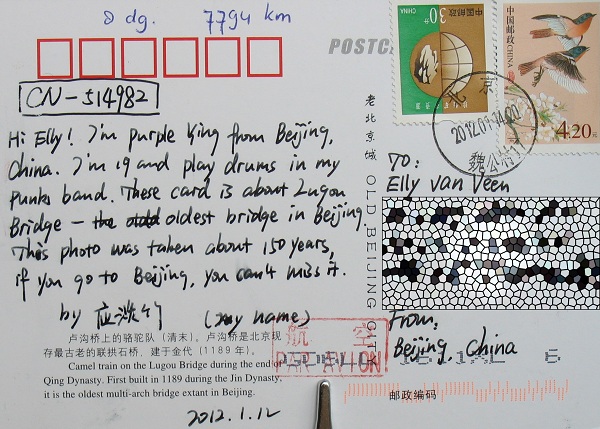 8 dg. 7794 km
POSTC
CN-514982
Hi Elly! I'm purple king from Beijing,
China. I'm 19 and play drums in my
punk band. These card is about Lugou
Bridge – the old oldest bridge in Beijing.
This photo was taken about 150 years,
if you go to Beijing, you can't miss it.
by 应 竹 (my name)
卢沟桥上的骆驼队（清末）。卢沟桥是北京现
存最古老的联拱石桥，建于金代（1189 年）。
Camel train on the Lugou Bridge during the end of
Qing Dynasty. First built in 1189 during the Jin Dynasty,
it is the oldest multi-arch bridge extant in Beijing.
2012.1.12
老北京城 OLD BEIJING CITY
30分
CHINA
中国邮政
中国邮政
CHINA
4.20元
北京
2012.01.14.20
魏公村
TO:
Elly van Veen
From:
Beijing, China
航空
PAR AVION
6
邮政编码